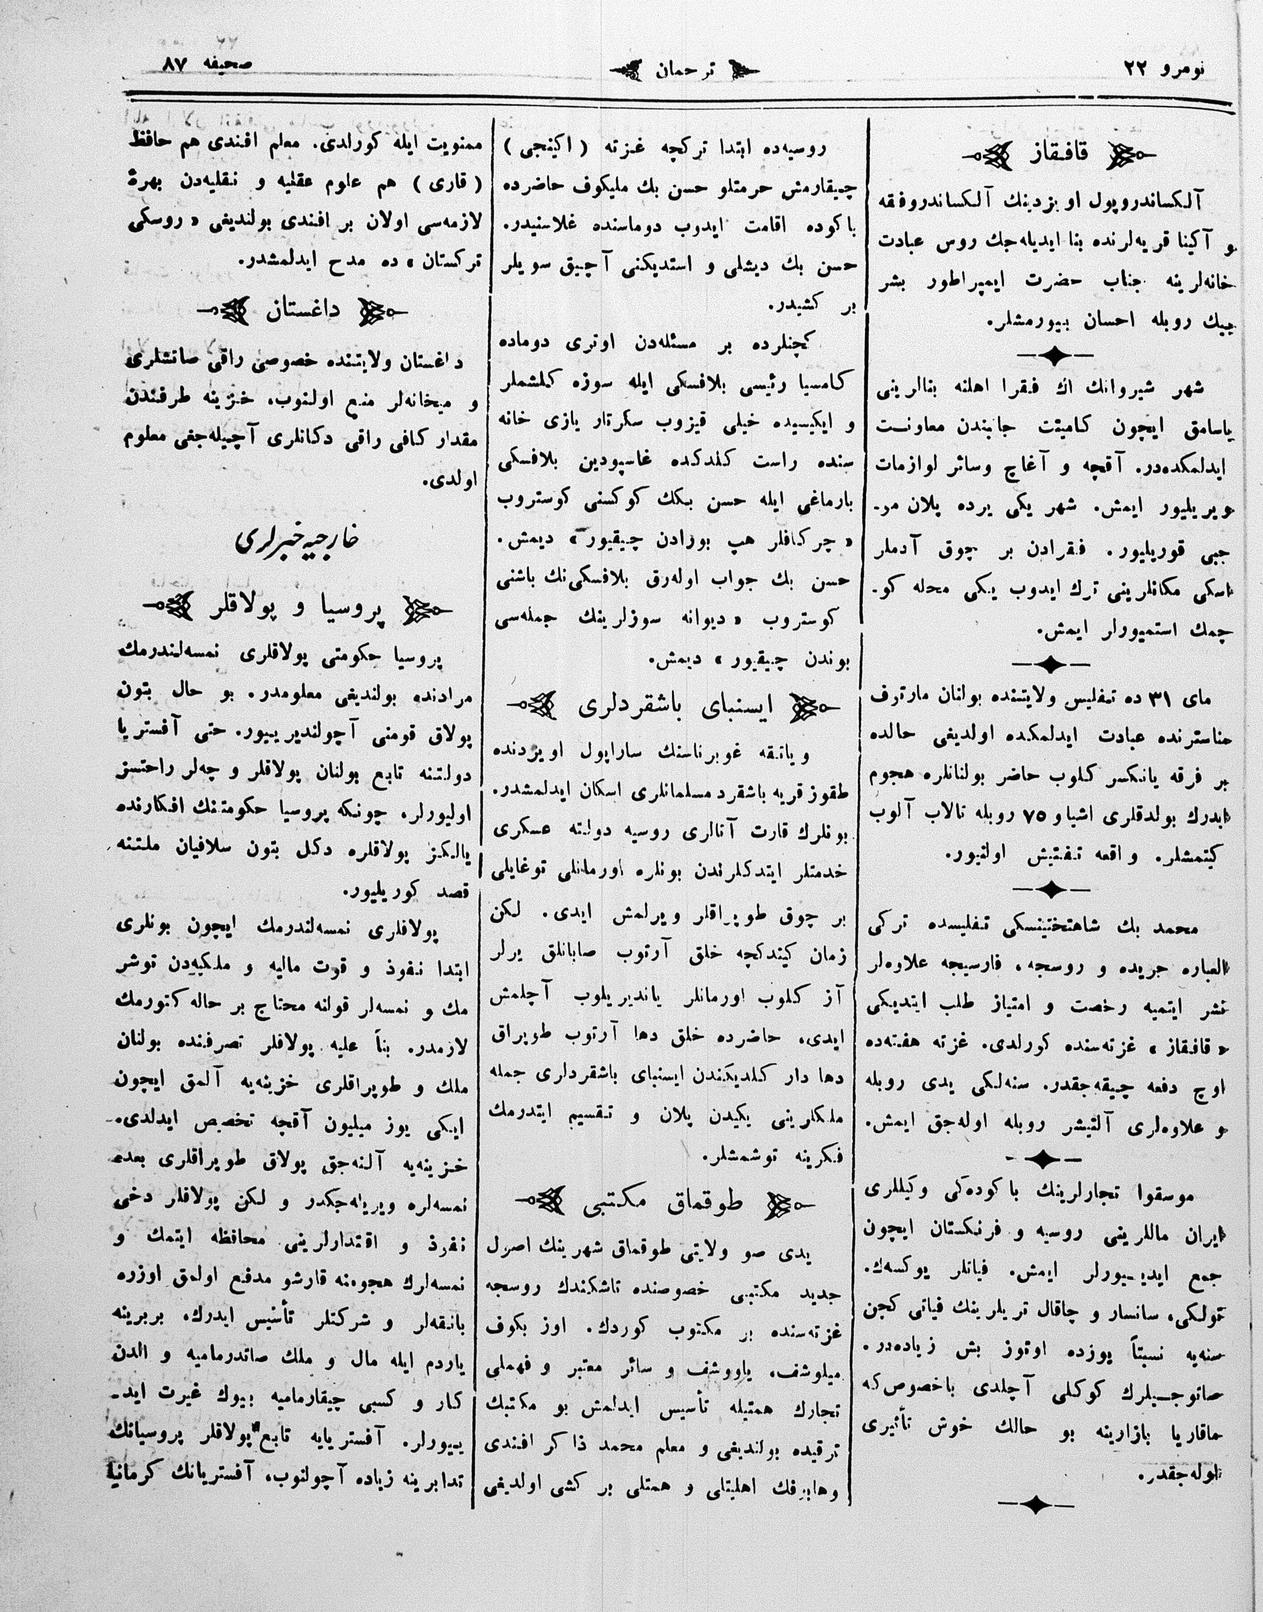 نومرو ٢٢
ترجمان
صحیفه ٨٧
قافقاز
آلکساندروپول اویزدینك آلکساندروفقه
و آکینا قریه‌لرنده بنا ایدیله‌جك روس عبادت
خانه‌لرینه جناب حضرت ایمپراطور بشر
بیك روبله احسان بیورمشلر.
شهر شیروانك اك فقرا اهلنه بنالرینی
یاسامق ایچون کامیتت جانبندن معاونت
ایدلمکده‌در. آقچه و آغاچ وسائر لوازمات
ویریلیور ایمش. شهر یکی یرده پلان مو-
جبی قوریلیور. فقرادن بر چوق آدملر
اسکی مکانلرینی ترك ایدوب یکی محله کو-
چمك استمیورلر ایمش.
مای ٣١ ده تفلیس ولایتنده بولنان مارتوف
مناسترنده عبادت ایدلمکده اولدیغی حالده
بر فرقه یانکسر کلوب حاضر بولنانلره هجوم
ایدرك بولدقلری اشیا و ٧٥ روبله تالاب آلوب
کیتمشلر. واقعه تفتیش اولنیور.
محمد بك شاهتختینسکی تفلیسده ترکی
العباره جریده و روسجه، فارسیجه علاوه‌لر
نشر ایتمیه رخصت و امتیاز طلب ایتدیکی
« قافقاز » غزته‌سنده کورلدی. غزته هفته‌ده
اوچ دفعه چیقه‌جقدر. سنه‌لکی یدی روبله
و علاوه‌لری آلتیشر روبله اوله‌جق ایمش.
موسقوا تجارلرینك باکوده‌کی وکیللری
ایران ماللرینی روسیه و فرنکستان ایچون
جمع ایدیورلر ایمش. فیاتلر یوکسه‌ك.
تولکی، سانسار و چاقال تریلرینك فیاتی کچن
سنه‌یه نسبتاً یوزده اوتوز بش زیاده‌در.
صاتوجیلرك کوکلی آچلدی باخصوص که
ماقاریا بازارینه بو حالك خوش تأثیری
اوله‌جقدر.
روسیه‌ده ابتدا ترکچه غزته ( اکینجی )
چیقارمش حرمتلو حسن بك ملیکوف حاضرده
باکوده اقامت ایدوب دوماسنده غلاسنیدر.
حسن بك دیشلی و استدیکنی آچیق سویلر
بر کشیدر.
کچنلرده بر مسئله‌دن اوتری دوماده
کامسیا رئیسی بلافسکی ایله سوزه کلشملر
و ایکیسیده خیلی قیزوب سکرتار یازی خانه
سنده راست کلدکده غاسپودین بلافسکی
بارماغی ایله حسن بکك کوکسنی کوستروب
« چرکافلر هپ بورادن چیقیور » دیمش.
حسن بك جواب اوله‌رق بلافسکی‌نك باشنی
کوستروب « دیوانه سوزلرینك جمله‌سی
بوندن چیقیور » دیمش.
ایسنبای باشقردلری
ویاتقه غوبرناسنك ساراپول اویزدنده
طقوز قریه باشقرد مسلمانلری اسکان ایدلمشدر.
بونلرك قارت آتالری روسیه دولته عسکری
خدمتلر ایتدکلرندن بونلره اورمانلی توغایلی
بر چوق طوپراقلر ویرلمش ایدی. لکن
زمان کیتدکچه خلق آرتوب صابانلق یرلر
آز کلوب اورمانلر یاندیریلوب آچلمش
ایدی. حاضرده خلق دها آرتوب طوپراق
دها دار کلدیکندن ایسنبای باشقردلری جمله
ملکلرینی یکیدن پلان و تقسیم ایتدرمك
فکرینه توشمشلر.
طوقماق مکتبی
یدی صو ولایتی طوقماق شهرینك اصول
جدید مکتبی خصوصنده تاشکندك روسجه
غزته‌سنده بر مکتوب کوردك. اوزبکوف
میلوشف، یاووشف و سائر معتبر و فهملی
تجارك همتیله تأسیس ایدلمش بو مکتبك
ترقیده بولندیغی و معلم محمد ذاکر افندی
وهابوفك اهلیتلی و همتلی بر کشی اولدیغی
ممنویت ایله کورلدی. معلم افندی هم حافظ
( قاری ) هم علوم عقلیه و نقلیه‌دن بهرهٔ
لازمه‌سی اولان بر افندی بولندیغی « روسکی
ترکستان » ده مدح ایدلمشدر.
داغستان
داغستان ولایتنده خصوصی راقی صاتشلری
و میخانه‌لر منع اولنوب، خزینه طرفندن
مقدار کافی راقی دکانلری آچیله‌جغی معلوم
اولدی.
خارجیه خبرلری
پروسیا و پولاقلر
پروسیا حکومتی پولاقلری نمسه‌لندرمك
مرادنده بولندیغی معلومدر. بو حال بتون
پولاق قومنی آچولندیرییور. حتی آفستریا
دولتنه تابع بولنان پولاقلر و چه‌لر راحتسز
اولیورلر. چونکه پروسیا حکومتنك افکارنده
یالکز پولاقلره دکل بتون سلافیان ملتنه
قصد کوریلیور.
پولاقلری نمسه‌لندرمك ایچون بونلری
ابتدا نفوذ و قوت مالیه و ملکیه‌دن توشر
مك و نمسه‌لر قولنه محتاج بر حاله کتورمك
لازمدر. بناً علیه پولاقلر تصرفنده بولنان
ملك و طوپراقلری خزینه‌یه آلمق ایچون
ایکی یوز میلیون آقچه تخصیص ایدلدی.
خزینه‌یه آلنه‌جق پولاق طوپراقلری بعده
نمسه‌لره ویریله‌جکدر و لکن پولاقلر دخی
نفوذ و اقتدارلرینی محافظه ایتمك و
نمسه‌لرك هجومنه قارشو مدفع اولمق اوزره
بانقه‌لر و شرکتلر تأسیس ایدرك، بربرینه
یاردم ایله مال و ملك صاتدرمامیه و الدن
کار و کسبی چیقارمامیه بیوك غیرت اید-
ییورلر. آفستریایه تابع پولاقلر پروسیانك
تدابرینه زیاده آچولنوب، آفستریانك کرمانیا